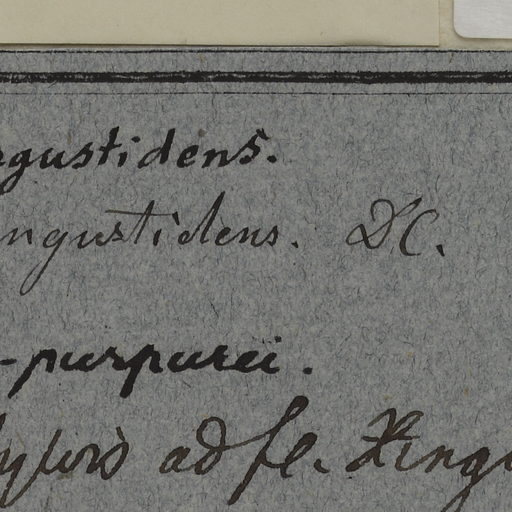 ngustidens.
ngustidens. DC.
-purpurei.
ad fl.